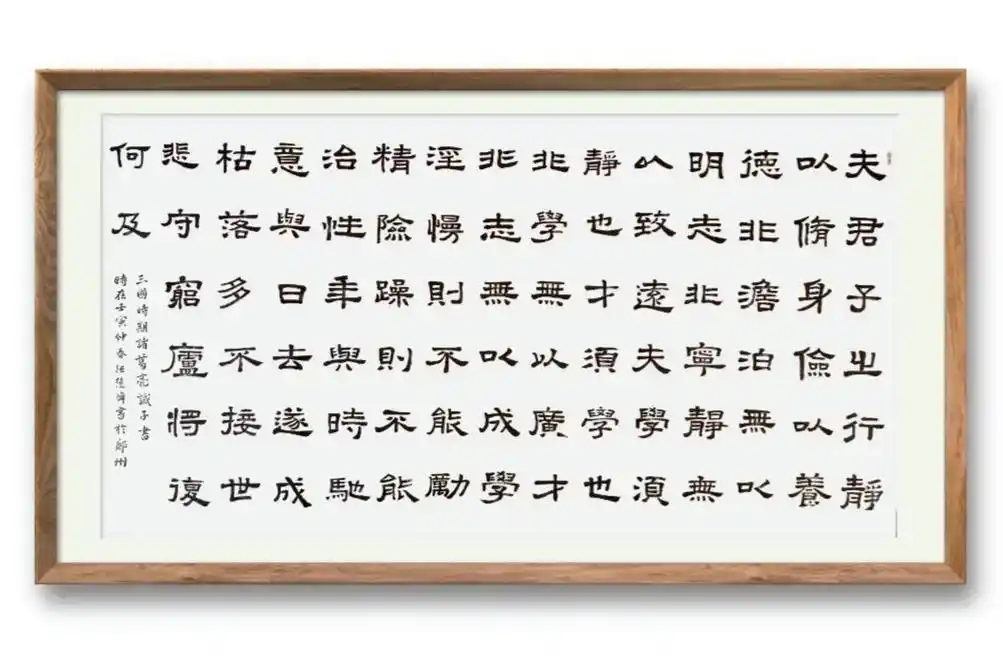 夫君子之行靜
以脩身儉以養
德非澹泊無以
明志非寧靜無
以致遠夫學須
靜也才須學也
非學無以廣才
非志無以成學
淫慢則不能勵
精險躁則不能
治性年與時馳
意與日去遂成
枯落多不接世
悲守窮廬將復
何及
三國時期諸葛亮誡子書
時在壬寅仲春書於鄭州